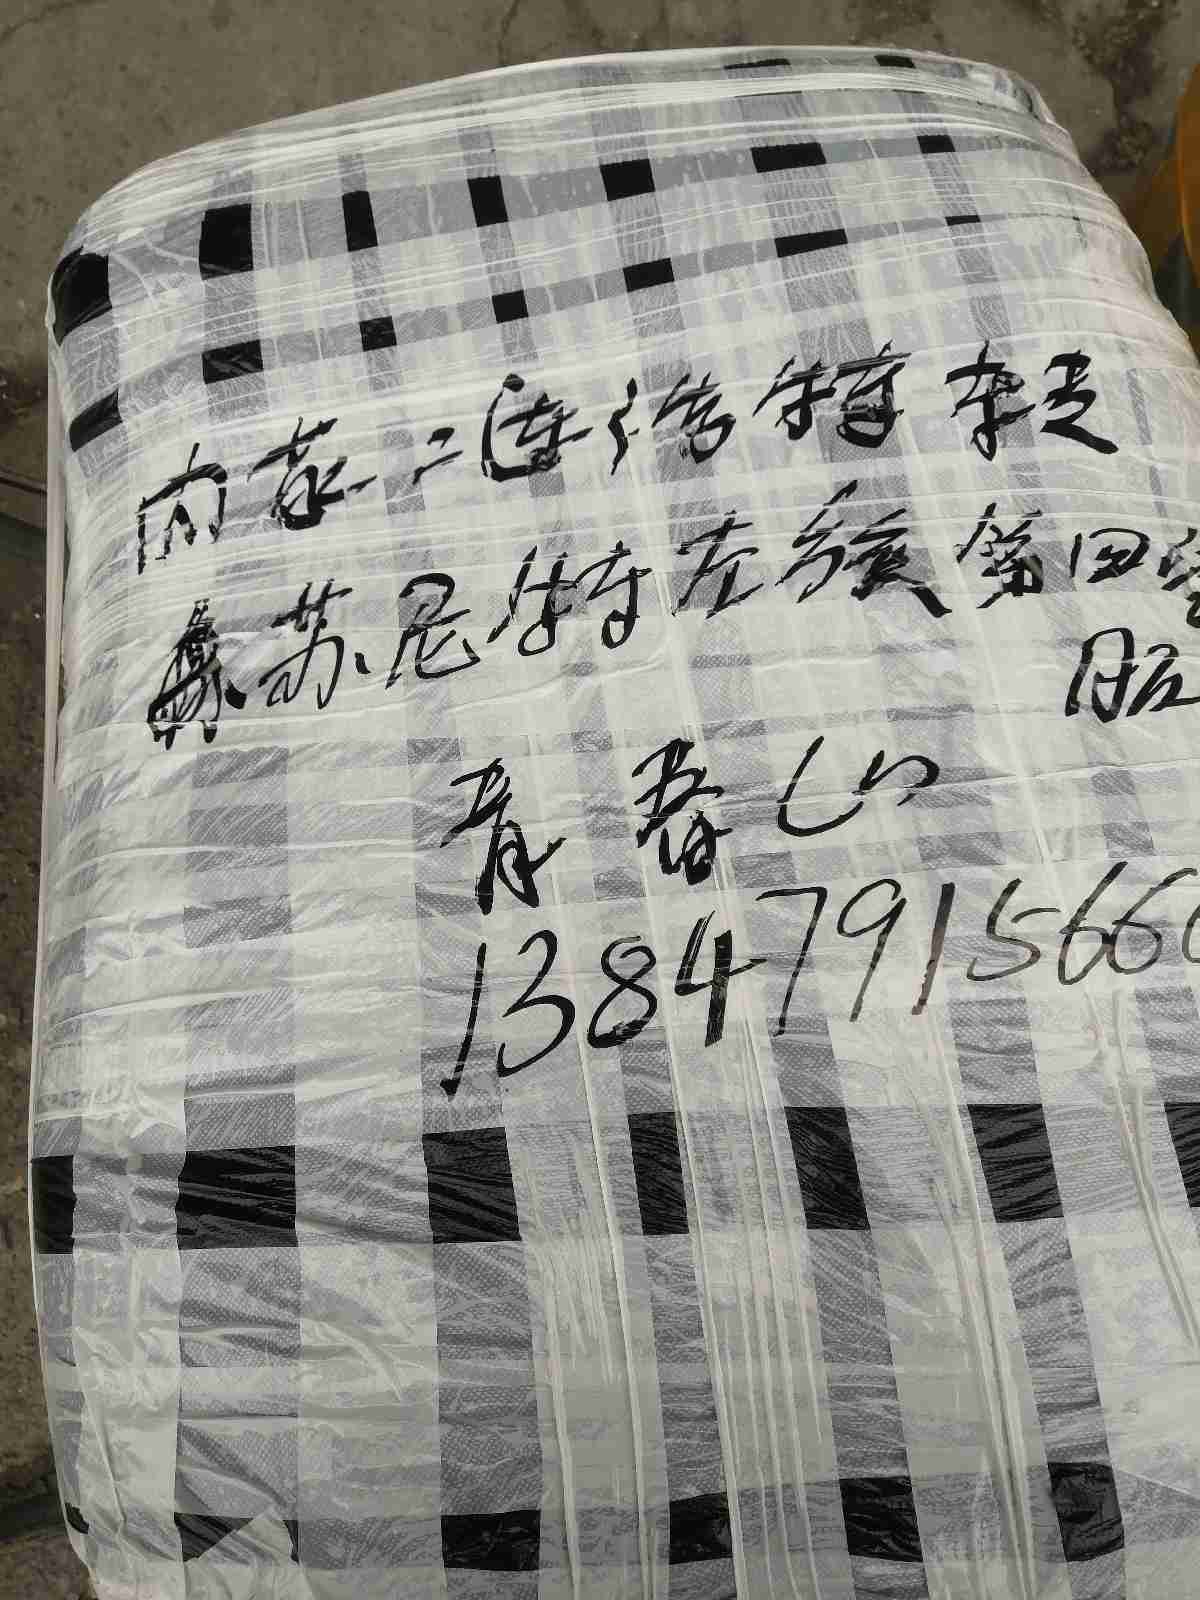 内蒙二连浩特转
苏尼特左旗第四
青春山
1384791566